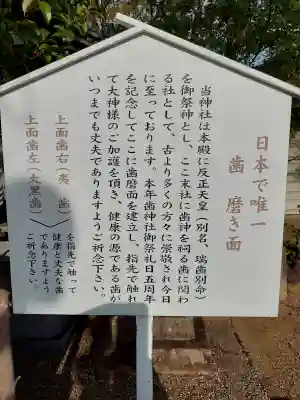 日本で唯一
歯磨き面
当神社は本殿に反正天皇（別名、瑞歯別命）
を御祭神とし、ここ末社に歯神を祠る歯に関わ
る社として、古より多くの方々に崇敬され今日
に至っております。本年歯神社御祭礼日五周年
を記念してここに歯磨面を建立し、指先で触れ
て大神様のご加護を頂き、健康の源である歯が
いつまでも丈夫でありますようご祈念下さい。
上面歯右（夷　歯）
上面歯左（大黒歯）
を指先で触って
健康と丈夫な歯
でありますよう
ご祈念下さい。